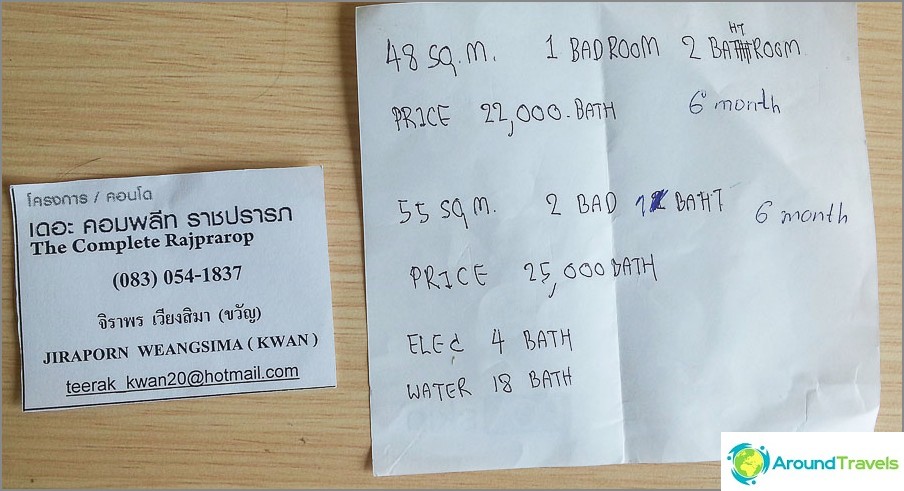 โครงการ / คอนโด
เดอะ คอมพลีท ราชปรารภ
The Complete Rajprarop
(083) 054-1837
จิราพร เวียงสิมา (ขวัญ)
JIRAPORN WEANGSIMA ( KWAN )
teerak_kwan20@hotmail.com
48 SQ.M. 1 BADROOM 2 BATHROOM
PRICE 22,000.BATH 6 month
55 SQ M. 2 BAD 1 BAHT 6 month
PRICE 25,000 BATH
ELEC 4 BATH
WATER 18 BATH
AroundTravels